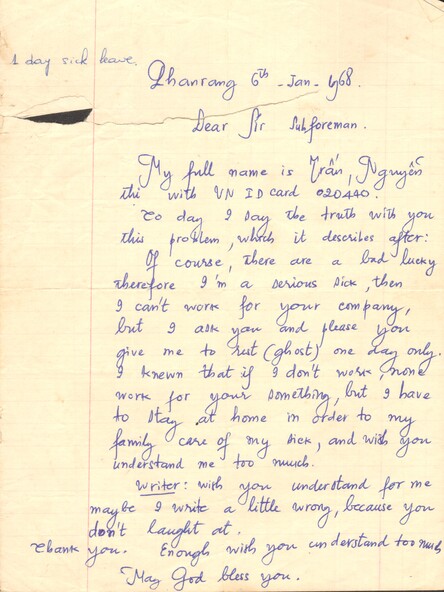 1 day sick leave.
Phanrang 6th - Jan - 1968.
Dear Sir Subforeman.
My full name is Trấn, Nguyên
thi with VN ID card 020440.
To day I say the truth with you
this problem, which it describes after:
Of course, there are a bad lucky
therefore I'm a serious sick, then
I can't work for your company,
but I ask you and please you
give me to rest (ghost) one day only.
I knewn that if I don't work, none
work for your something, but I have
to stay at home in order to my
family care of my sick, and with you
understand me too much.
Writer: with you understand for me
maybe I write a little wrong, because you
don't laught at.
Thank you. Enough with you understand too much
May God bless you.